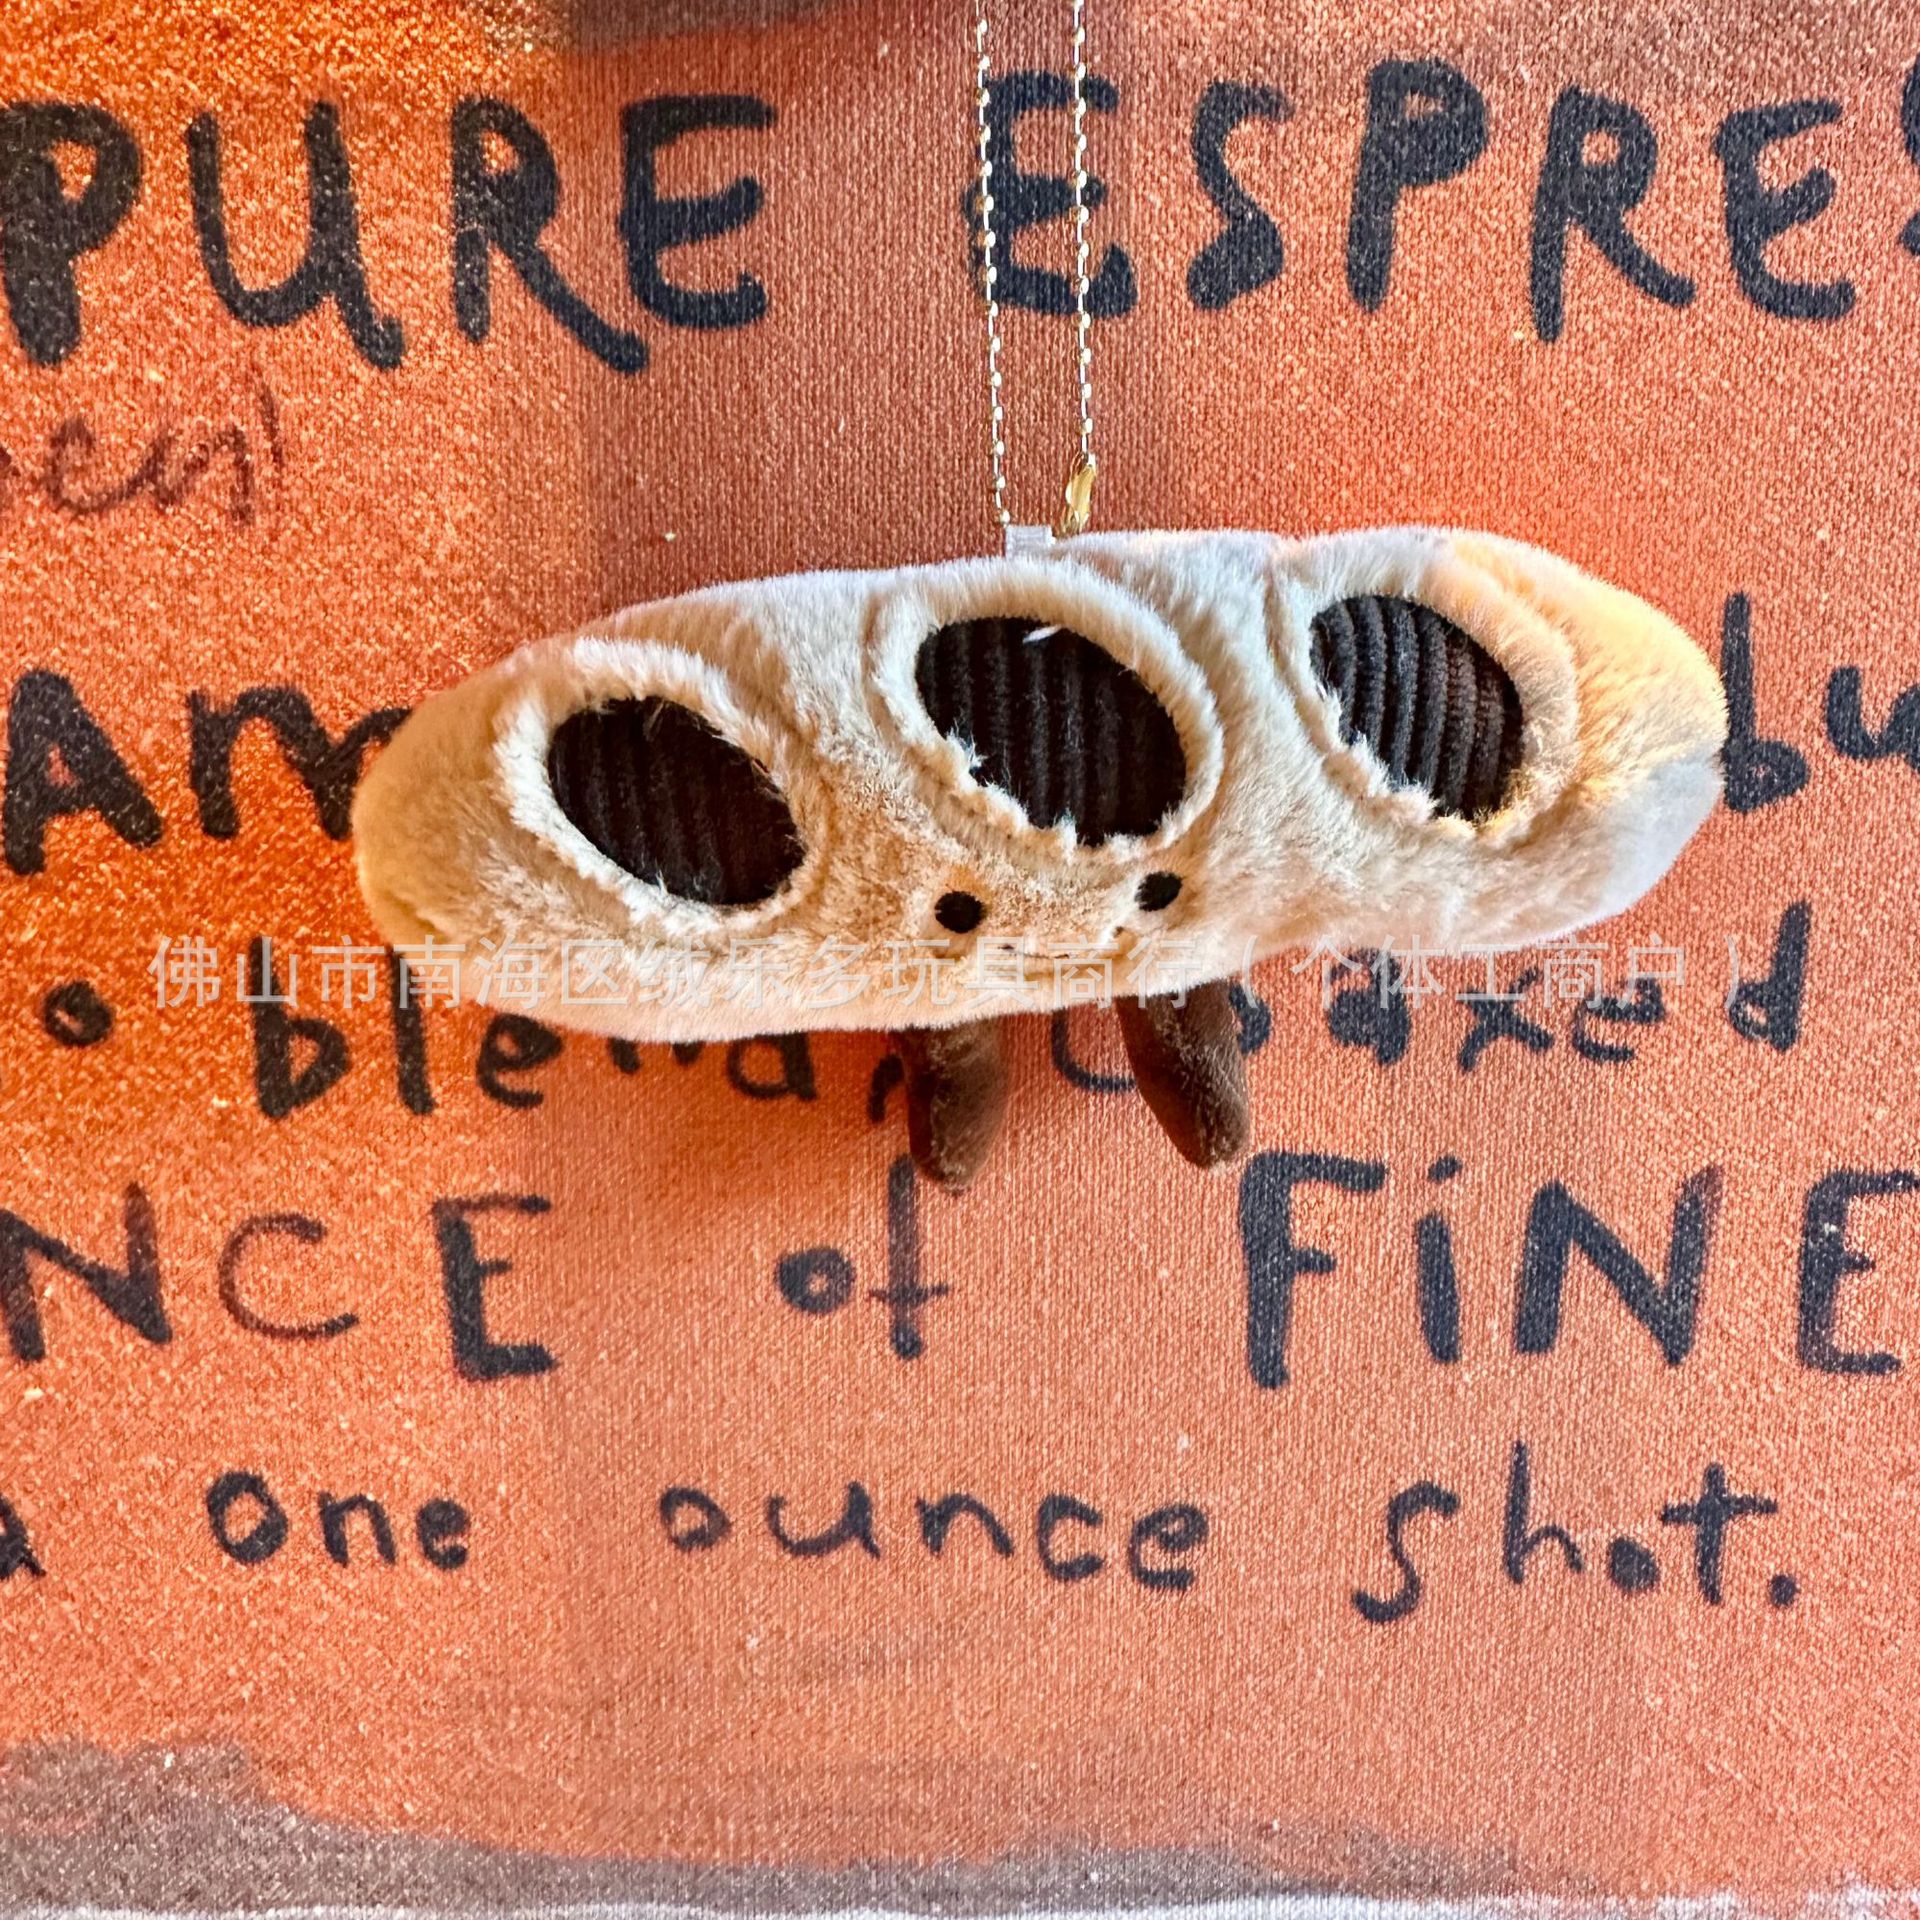 PURE ESPRES
Am bu
佛山市南海区绒乐多玩具商行（个体工商户）
o blend, coaxed
NCE of FiNE
a one ounce shot.